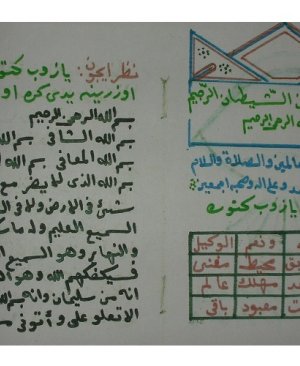 نظر ايچون: يازوب كتو
اوزرينه يدى كره او
بسم الله الرحمن الرحيم
بسم الله الشافى بسم الله
بسم الله المعافى بسم الله
بسم الله الذى لا يضر مع
شىء فى الارض ولا فى ال
السميع العليم ولد ما سك
والنهار وهو السميع ا
فسيكفيكهم الله وهو ا
انه من سليمان وانه بسم ا
الا تعلو على وأتونى مس
الشيطان الرجيم
الله الرحمن الرحيم
لمين والصلاة والسلام
د وعلى اله وصحبه اجمعين
يازوب كتوره
ونعم الوكيل
محيط مغنى
مهلك عالم
معبود باقى